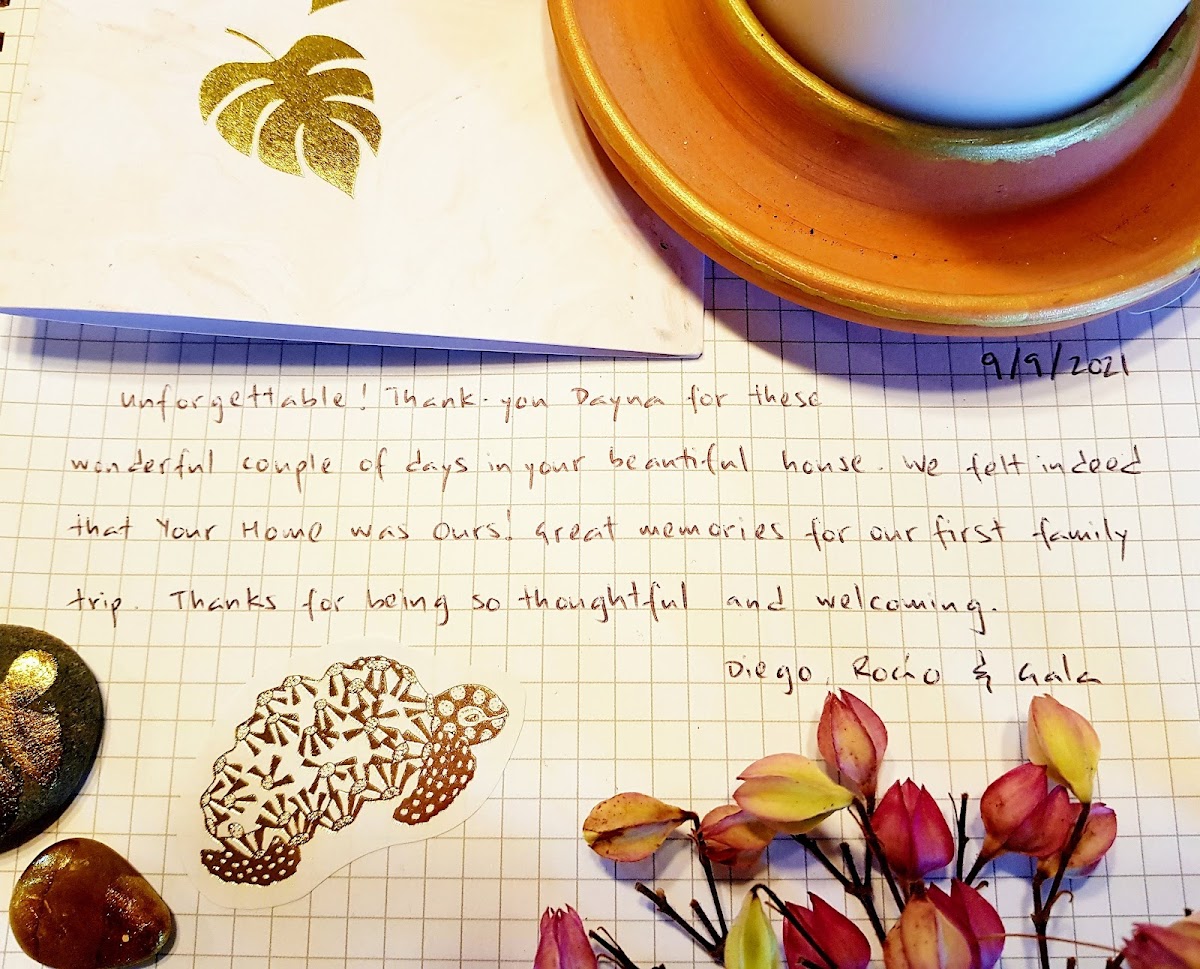 9/9/2021
Unforgettable! Thank-you Dayna for these
wonderful couple of days in your beautiful house. We felt indeed
that Your Home was Ours! Great memories for our first family
trip. Thanks for being so thoughtful and welcoming.
Diego, Rocho & Gala